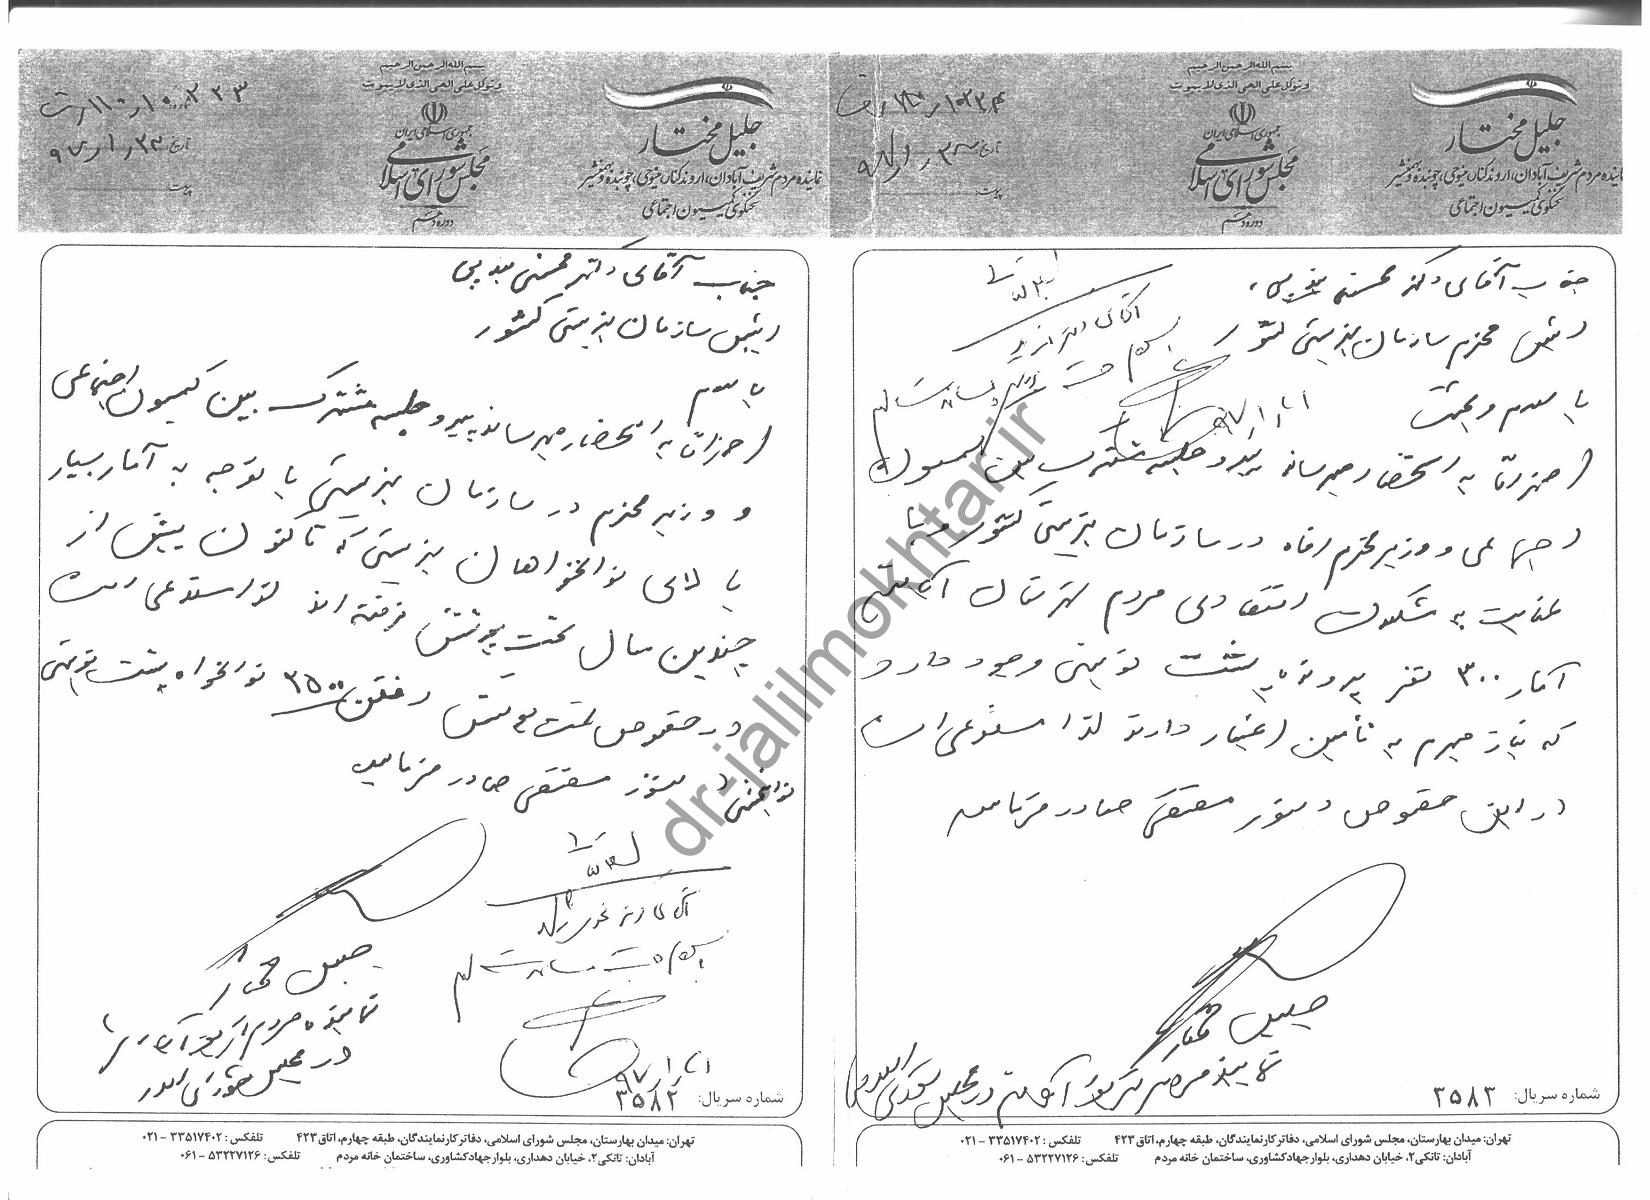 بسم الله الرحمن الرحیم
وتوکل علی الحی الذی لا یموت
جمهوری اسلامی ایران
مجلس شورای اسلامی
دوره دهم
جلیل مختار
نماینده مردم شریف آبادان، اروندکنار، مینوحی، چوئبده و بهمنشیر
سخنگوی کمیسیون اجتماعی
تاریخ:
پیوست:
جناب آقای دکتر محسنی بندپی،
رئیس محترم سازمان بهزیستی کشور
با سلام و تحیت
احتراماً به استحضار میرساند پیرو جلسه مشترک بین کمیسیون
اجتماعی و وزیر محترم رفاه در سازمان بهزیستی کشور و با
عنایت به مشکلات اعتقادی مردم شهرستان آبادان
آمار ۳۰۰ نفر پرونده پشت نوبتی وجود دارد
که نیاز مبرم به تأمین اعتبار دارند لذا مستدعی است
در این خصوص دستور مقتضی صادر فرمایید
۹۷/۱/۲۱
جلیل مختار
نماینده مردم شریف آبادان در مجلس شورای اسلامی
شماره سریال: ۳۵۸۳
تهران: میدان بهارستان، مجلس شورای اسلامی، دفاتر کار نمایندگان، طبقه چهارم، اتاق ۴۲۳ تلفکس: ۳۳۵۱۷۴۰۲ - ۰۲۱
آبادان: تانکی۲، خیابان دهداری، بلوار جهاد کشاورزی، ساختمان خانه مردم تلفکس: ۵۳۲۲۷۱۲۶ - ۰۶۱
بسم الله الرحمن الرحیم
وتوکل علی الحی الذی لا یموت
جمهوری اسلامی ایران
مجلس شورای اسلامی
دوره دهم
جلیل مختار
نماینده مردم شریف آبادان، اروندکنار، مینوحی، چوئبده و بهمنشیر
سخنگوی کمیسیون اجتماعی
تاریخ:
پیوست:
جناب آقای دکتر محسنی بندپی
رئیس سازمان بهزیستی کشور
با سلام
احتراماً به استحضار میرساند پیرو جلسه مشترک بین کمیسیون اجتماعی
و وزیر محترم در سازمان بهزیستی با توجه به آمار بسیار
بالای توانخواهان بهزیستی که تا کنون بیش از
چندین سال تحت پوشش نرفته اند لذا استدعی است
در خصوص تحت پوشش رفتن ۳۵۰۰ توانخواه پشت نوبتی
توانبخشی دستور مقتضی صادر فرمایید
جلیل مختار
نماینده مردم شریف آبادان
در مجلس شورای اسلامی
۹۷/۱/۲۱
شماره سریال: ۳۵۸۲
تهران: میدان بهارستان، مجلس شورای اسلامی، دفاتر کار نمایندگان، طبقه چهارم، اتاق ۴۲۳ تلفکس: ۳۳۵۱۷۴۰۲ - ۰۲۱
آبادان: تانکی۲، خیابان دهداری، بلوار جهاد کشاورزی، ساختمان خانه مردم تلفکس: ۵۳۲۲۷۱۲۶ - ۰۶۱
dr-jalilmokhtar.ir